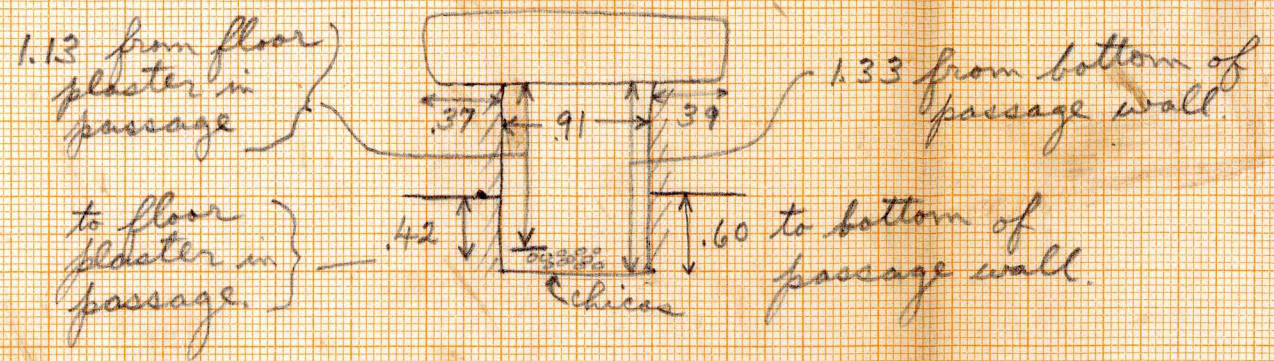 1.13 from floor
plaster in
passage
.37
.91
.39
1.33 from bottom of
passage wall.
to floor
plaster in
passage.
.42
.60 to bottom of
passage wall.
chicas